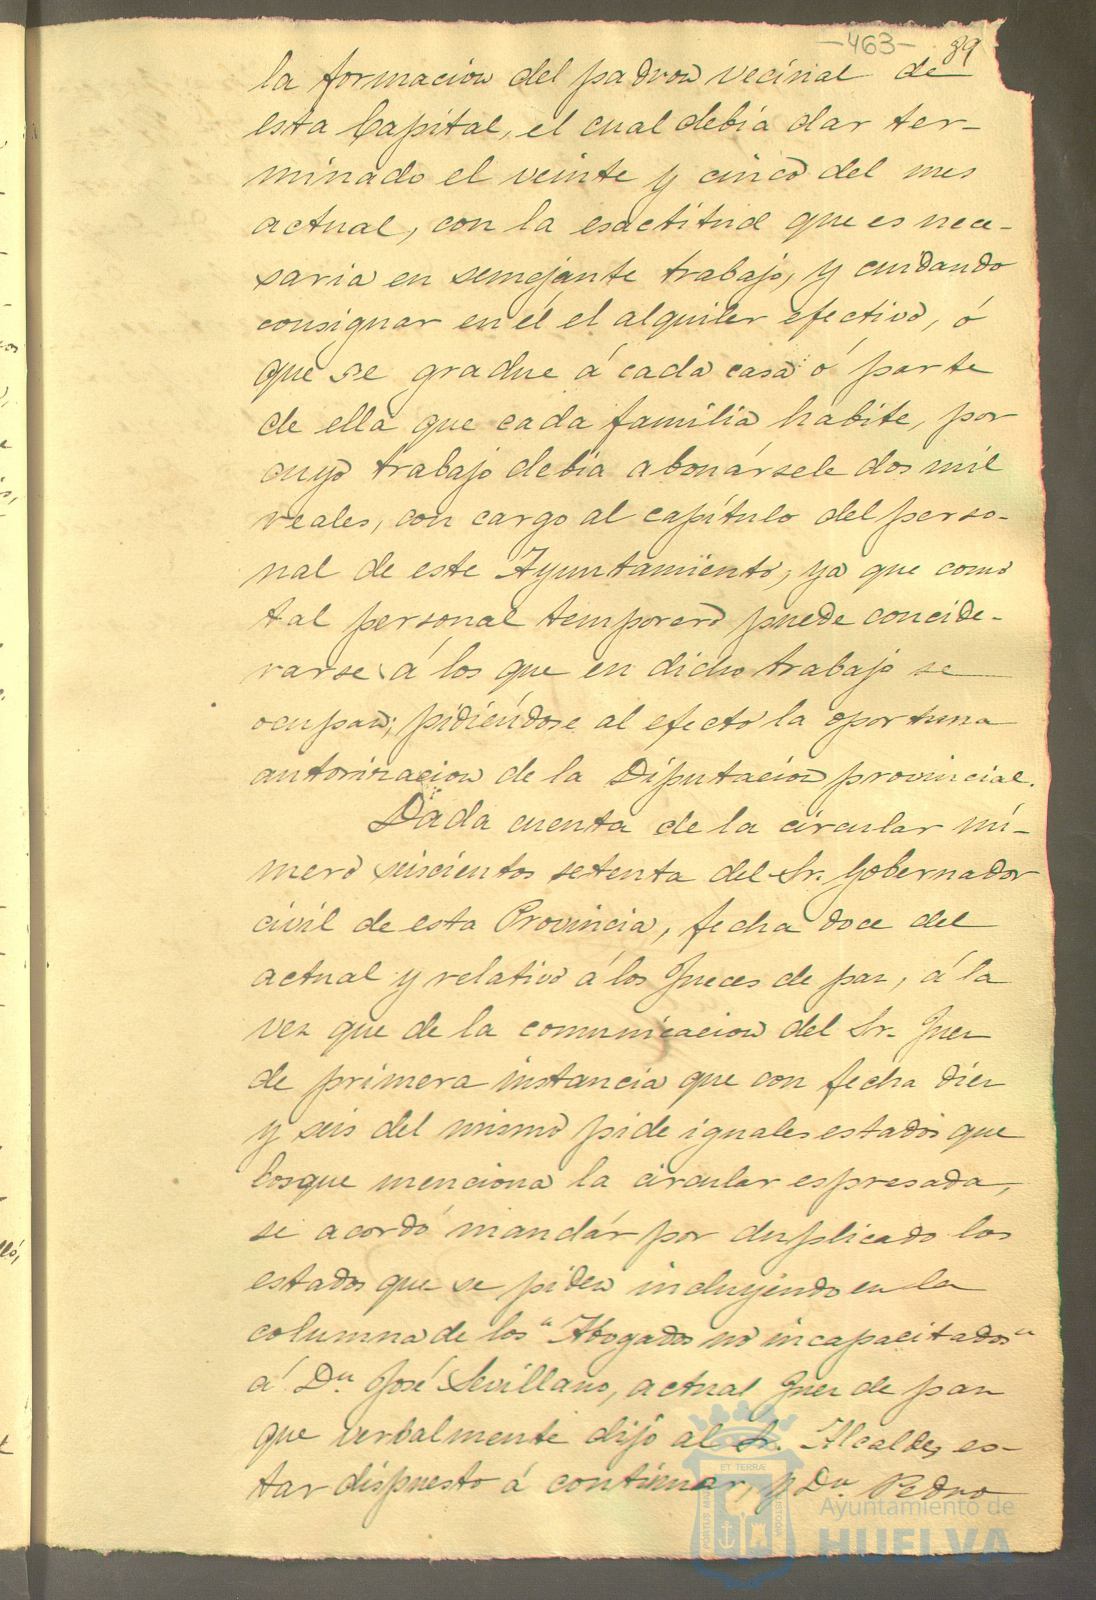 —463— 89
la formacion del padron vecinal de
esta Capital, el cual debia dar ter-
minado el veinte y cinco del mes
actual, con la esactitud que es nece-
saria en semejante trabajo, y cuidando
consignar en él el alquiler efectivo, ó
que se gradue á cada casa ó parte
de ella que cada familia habite, por
cuyo trabajo debia abonársele dos mil
reales, con cargo al capítulo del perso-
nal de este Ayuntamiento, ya que como
tal personal temporero puede concide-
rarse á los que en dicho trabajo se
ocupan; pidiéndose al efecto la oportuna
autorizacion de la Diputacion provincial.
Dada cuenta de la circular nú-
mero seiscientos setenta del Sr. Gobernador
civil de esta Provincia, fecha doce del
actual y relativo á los Jueces de paz, á la
vez que de la comunicacion del Sr. Juez
de primera instancia que con fecha diez
y seis del mismo pide iguales estados que
los que menciona la circular espresada,
se acordó mandár por duplicado los
estados que se piden incluyendo en la
columna de los "Abogados no incapacitados"
á Dn. José Sevillano, actual Juez de paz
que verbalmente dijo al Sr. Alcalde, es-
tar dispuesto á continuar, y Dn. Pedro
ET TERRÆ
PORTUS MARIS
CUSTODIA
Ayuntamiento de
HUELVA